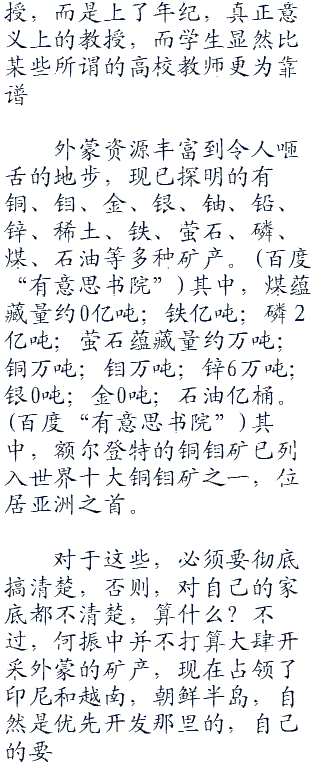 授，而是上了年纪，真正意
义上的教授，而学生显然比
某些所谓的高校教师更为靠
谱
外蒙资源丰富到令人咂
舌的地步，现已探明的有
铜、钼、金、银、铀、铅、
锌、稀土、铁、萤石、磷、
煤、石油等多种矿产。(百度
“有意思书院”)其中，煤蕴
藏量约0亿吨；铁亿吨；磷2
亿吨；萤石蕴藏量约万吨；
铜万吨；钼万吨；锌6万吨；
银0吨；金0吨；石油亿桶。
(百度“有意思书院”)其
中，额尔登特的铜钼矿已列
入世界十大铜钼矿之一，位
居亚洲之首。
对于这些，必须要彻底
搞清楚，否则，对自己的家
底都不清楚，算什么？不
过，何振中并不打算大肆开
采外蒙的矿产，现在占领了
印尼和越南，朝鲜半岛，自
然是优先开发那里的，自己
的要